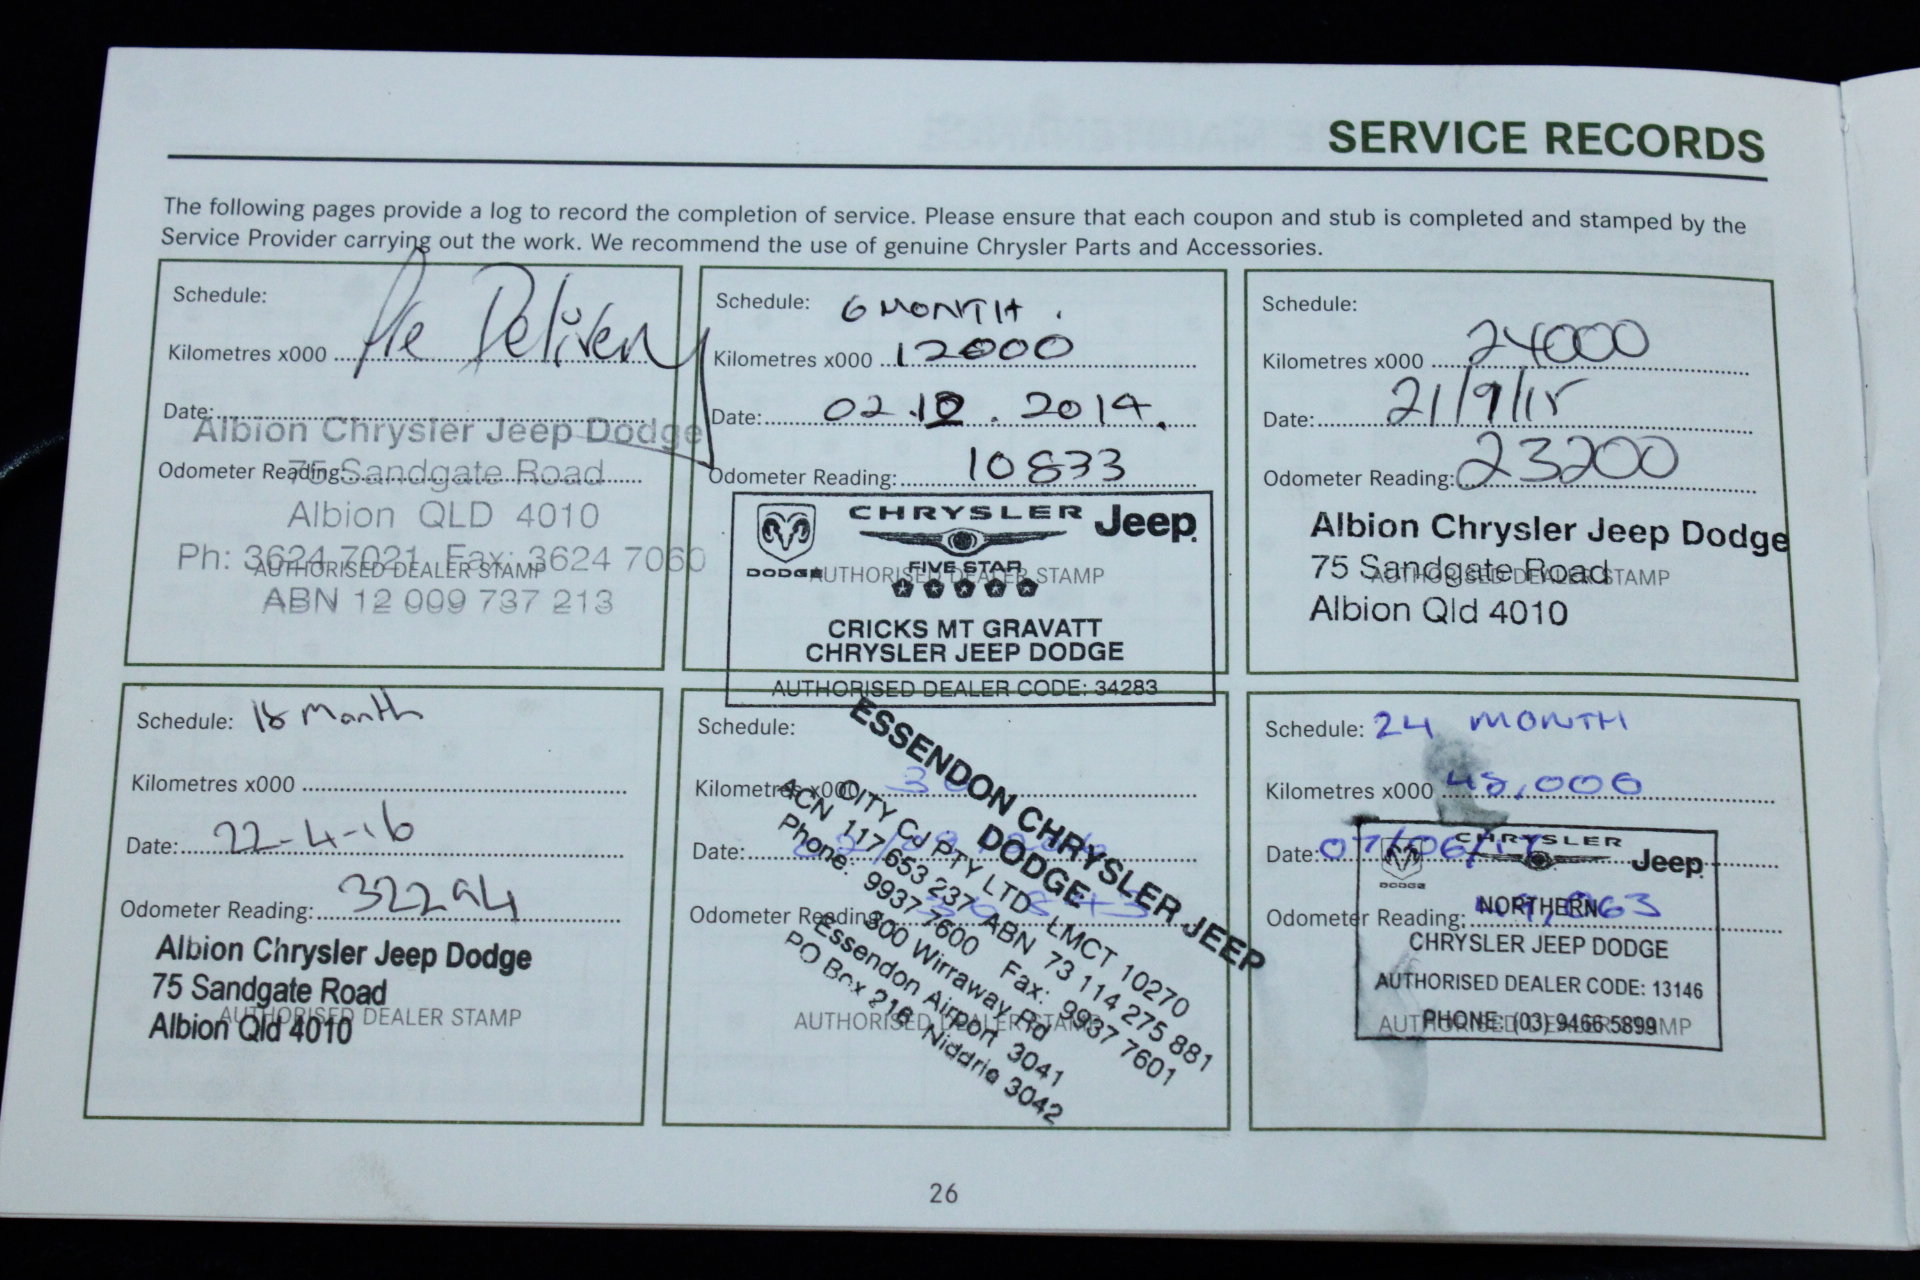 SERVICE RECORDS
The following pages provide a log to record the completion of service. Please ensure that each coupon and stub is completed and stamped by the
Service Provider carrying out the work. We recommend the use of genuine Chrysler Parts and Accessories.
Schedule:
Pre Delivery
Kilometres x000
Date:
Odometer Reading:
Albion Chrysler Jeep Dodge
75 Sandgate Road
Albion QLD 4010
Ph: 3624 7021 Fax: 3624 7060
AUTHORISED DEALER STAMP
ABN 12 009 737 213
Schedule: 6 MONTH.
Kilometres x000 12000
Date: 02.12.2014.
Odometer Reading: 10833
CHRYSLER Jeep
DODGE FIVE STAR
AUTHORISED DEALER STAMP
CRICKS MT GRAVATT
CHRYSLER JEEP DODGE
AUTHORISED DEALER CODE: 34283
Schedule:
Kilometres x000 24000
Date: 21/9/15
Odometer Reading: 23200
Albion Chrysler Jeep Dodge
75 Sandgate Road
AUTHORISED DEALER STAMP
Albion Qld 4010
Schedule: 18 Month
Kilometres x000
Date: 22-4-16
Odometer Reading: 32294
Albion Chrysler Jeep Dodge
75 Sandgate Road
Albion Qld 4010
AUTHORISED DEALER STAMP
Schedule:
Kilometres x000
Date:
Odometer Reading:
AUTHORISED DEALER STAMP
ESSENDON CHRYSLER JEEP
DODGE
CITY CJ PTY LTD LMCT 10270
ACN 117 653 237 ABN 73 114 275 881
Phone: 9937 7600 Fax: 9937 7601
300 Wirraway Rd
Essendon Airport 3041
PO Box 216 Niddrie 3042
Schedule: 24 MONTH
Kilometres x000 48,000
Date: 07/06/17
Odometer Reading:
CHRYSLER Jeep
DODGE
NORTHERN
CHRYSLER JEEP DODGE
AUTHORISED DEALER CODE: 13146
PHONE: (03) 9466 5899
AUTHORISED DEALER STAMP
26